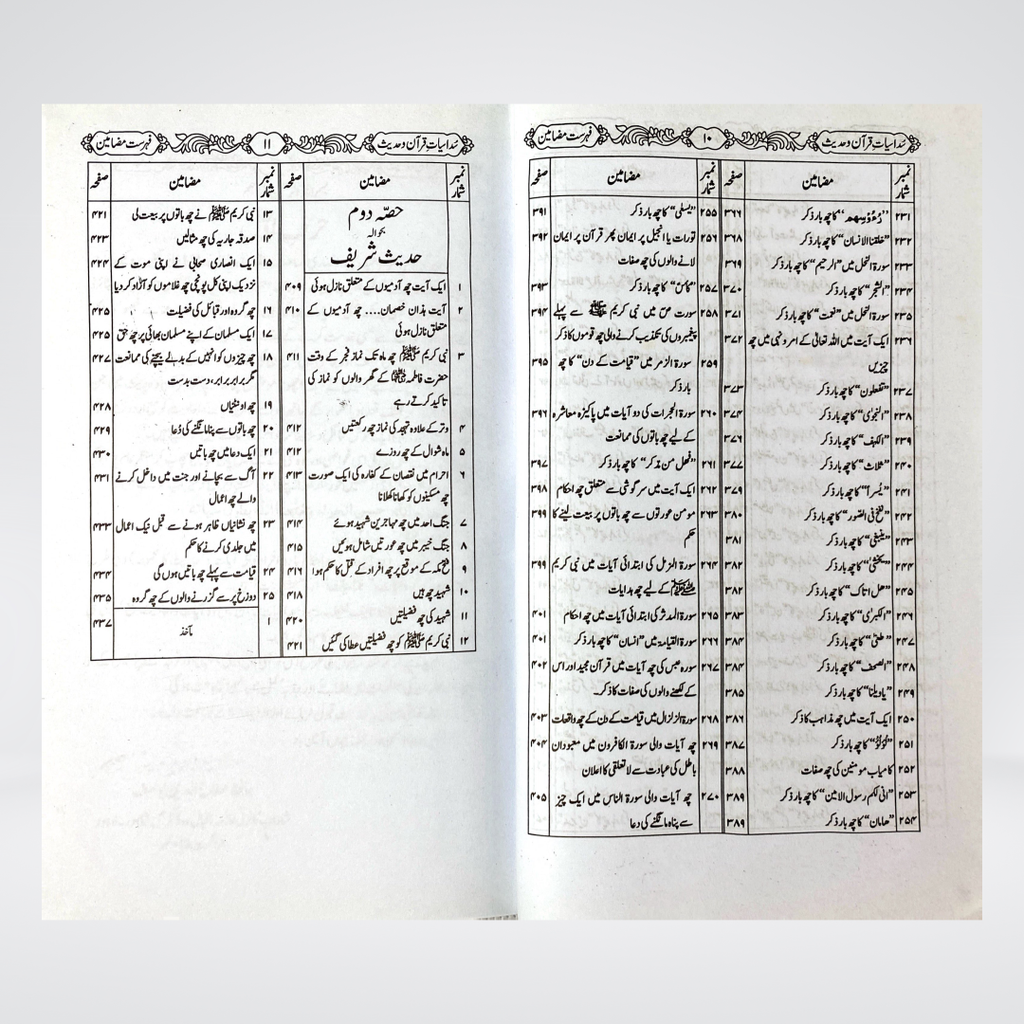 سُداسیاتِ قرآن و حدیث ۱۰ فہرست مضامین
نمبر شمار مضامین صفحہ
۲۳۱ ”رُءُوسِھِم“ کا چھ بار ذکر ۳۶۶
۲۳۲ ”خلقنا الانسان“ کا چھ بار ذکر ۳۶۸
۲۳۳ سورۃ النحل میں ”الرحیم“ کا چھ بار ذکر ۳۶۹
۲۳۴ ”الشجر“ کا چھ بار ذکر ۳۷۰
۲۳۵ سورۃ النحل میں ”نعمت“ کا چھ بار ذکر ۳۷۱
۲۳۶ ایک آیت میں اللہ تعالیٰ کے امر و نہی میں چھ ۳۷۲
چیزیں
۲۳۷ ”تفعلون“ کا چھ بار ذکر ۳۷۳
۲۳۸ ”النجوٰی“ کا چھ بار ذکر ۳۷۴
۲۳۹ ”الکہف“ کا چھ بار ذکر ۳۷۶
۲۴۰ ”ثلاث“ کا چھ بار ذکر ۳۷۷
۲۴۱ ”یُسراً“ کا چھ بار ذکر ۳۷۹
۲۴۲ ”نفخ فی الصور“ کا چھ بار ذکر ۳۸۰
۲۴۳ ”ینبغی“ کا چھ بار ذکر ۳۸۱
۲۴۴ کا چھ بار ذکر ۳۸۲
۲۴۵ ”ھل اتاک“ کا چھ بار ذکر ۳۸۲
۲۴۶ ”الکبرٰی“ کا چھ بار ذکر ۳۸۳
۲۴۷ ”طغٰی“ کا چھ بار ذکر ۳۸۴
۲۴۸ ”الصحف“ کا چھ بار ذکر ۳۸۴
۲۴۹ ”یاویلنا“ کا چھ بار ذکر ۳۸۵
۲۵۰ ایک آیت میں چھ مذاہب کا ذکر ۳۸۶
۲۵۱ ”لُؤلُؤ“ کا چھ بار ذکر ۳۸۷
۲۵۲ کامیاب مومنین کی چھ صفات ۳۸۸
۲۵۳ ”انی لکم رسول الامین“ کا چھ بار ذکر ۳۸۹
۲۵۴ ”ھامان“ کا چھ بار ذکر ۳۸۹
نمبر شمار مضامین صفحہ
۲۵۵ ”یسعٰی“ کا چھ بار ذکر ۳۹۱
۲۵۶ تورات یا انجیل پر ایمان پھر قرآن پر ایمان ۳۹۲
لانے والوں کی چھ صفات
۲۵۷ ”کاس“ کا چھ بار ذکر ۳۹۳
۲۵۸ سورت صٓ میں نبی کریم ﷺ سے پہلے ۳۹۴
پیغمبروں کی تکذیب کرنے والی چھ قوموں کا ذکر
۲۵۹ سورۃ الزمر میں ”قیامت کے دن“ کا چھ ۳۹۵
بار ذکر
۲۶۰ سورۃ الحجرات کی دو آیات میں پاکیزہ معاشرہ ۳۹۶
کے لیے چھ باتوں کی ممانعت
۲۶۱ ”فھل من مدکر“ کا چھ بار ذکر ۳۹۷
۲۶۲ ایک آیت میں سرگوشی سے متعلق چھ احکام ۳۹۸
۲۶۳ مومن عورتوں سے چھ باتوں پر بیعت لینے کا ۳۹۹
حکم
۲۶۴ سورۃ المزمل کی ابتدائی آیات میں نبی کریم ۳۹۹
ﷺ کے لیے چھ ہدایات
۲۶۵ سورۃ المدثر کی ابتدائی آیات میں چھ احکام ۴۰۱
۲۶۶ سورۃ القیامۃ میں ”انسان“ کا چھ بار ذکر ۴۰۱
۲۶۷ سورہ عبس کی چھ آیات میں قرآن مجید اور اس ۴۰۲
کے لکھنے والوں کی صفات کا ذکر۔
۲۶۸ سورۃ الزلزال میں قیامت کے دن کے چھ واقعات ۴۰۳
۲۶۹ چھ آیات والی سورۃ الکافرون میں معبودان ۴۰۴
باطل کی عبادت سے لاتعلقی کا اعلان
۲۷۰ چھ آیات والی سورۃ الناس میں ایک چیز ۴۰۵
سے پناہ مانگنے کی دعا
سُداسیاتِ قرآن و حدیث ۱۱ فہرست مضامین
نمبر شمار مضامین صفحہ
حصّہ دوم
بحوالہ
حدیث شریف
۱ ایک آیت چھ آدمیوں کے متعلق نازل ہوئی ۴۰۹
۲ آیت ہذان خصمان.... چھ آدمیوں کے ۴۱۰
متعلق نازل ہوئی
۳ نبی کریم ﷺ چھ ماہ تک نماز فجر کے وقت ۴۱۱
حضرت فاطمہؓ کے گھر والوں کو نماز کی
تاکید کرتے رہے
۴ وتر کے علاوہ تہجد کی نماز چھ رکعتیں ۴۱۲
۵ ماہ شوال کے چھ روزے ۴۱۲
۶ احرام میں نقصان کے کفارہ کی ایک صورت ۴۱۳
چھ مسکینوں کو کھانا کھلانا
۷ جنگ احد میں چھ مہاجرین شہید ہوئے ۴۱۴
۸ جنگ خیبر میں چھ عورتیں شامل ہوئیں ۴۱۵
۹ فتح مکہ کے موقع پر چھ افراد کے قتل کا حکم ہوا ۴۱۶
۱۰ شہید چھ ہیں ۴۱۸
۱۱ شہید کی چھ فضیلتیں ۴۲۰
۱۲ نبی کریم ﷺ کو چھ فضیلتیں عطا کی گئیں ۴۲۱
نمبر شمار مضامین صفحہ
۱۳ نبی کریم ﷺ نے چھ باتوں پر بیعت لی ۴۲۱
۱۴ صدقہ جاریہ کی چھ مثالیں ۴۲۳
۱۵ ایک انصاری صحابی نے اپنی موت کے ۴۲۴
نزدیک اپنی کل پونجی چھ غلاموں کو آزاد کر دیا
۱۶ چھ گروہ اور قبائل کی فضیلت ۴۲۵
۱۷ ایک مسلمان کے اپنے مسلمان بھائی پر چھ حق ۴۲۵
۱۸ چھ چیزوں کو انہیں کے بدلے بیچنے کی ممانعت ۴۲۷
مگر برابر برابر، دست بدست
۱۹ چھ اونٹنیاں ۴۲۸
۲۰ چھ باتوں سے پناہ مانگنے کی دُعا ۴۲۹
۲۱ ایک دعا میں چھ باتیں ۴۳۰
۲۲ آگ سے بچانے اور جنت میں داخل کرنے ۴۳۱
والے چھ اعمال
۲۳ چھ نشانیاں ظاہر ہونے سے قبل نیک اعمال ۴۳۳
میں جلدی کرنے کا حکم
۲۴ قیامت سے پہلے چھ باتیں ہوں گی ۴۳۴
۲۵ دوزخ پر سے گزرنے والوں کے چھ گروہ ۴۳۵
۱ مآخذ ۴۳۷